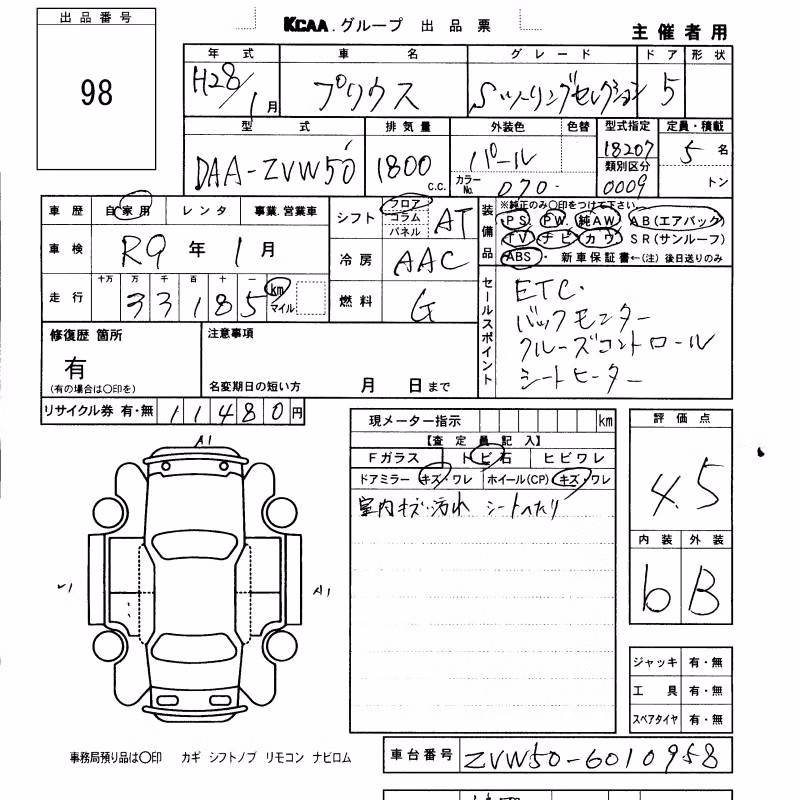 KCAA.グループ 出品票
主催者用
出品番号
98
年式 車名 グレード ドア 形状
H28/1月 プリウス Sツーリングセレクション 5
型式 排気量 外装色 色替 型式指定 定員・積載
DAA-ZVW50 1800 C.C. パール 18207 5名
カラーNo. 070. 類別区分 0009 トン
車歴 自家用 レンタ 事業.営業車
シフト フロア コラム パネル AT
装備品 ※純正のみ〇印をつけて下さい
PS PW 純AW AB(エアバック)
TV ナビ カワ SR(サンルーフ)
ABS・ 新車保証書←(注)後日送りのみ
車検 R9年1月
冷房 AAC
走行 十万 万 千 百 十 一
33185 km マイル
燃料 G
セールスポイント
ETC.
バックモンター
クルーズコントロール
シートヒーター
修復歴 箇所
有
(有の場合は〇印を)
注意事項
名変期日の短い方 月 日まで
リサイクル券 有・無 11480円
現メーター指示 km
【査定員記入】
Fガラス トビ石 ヒビワレ
ドアミラー キズ・ワレ ホイール(CP) キズ・ワレ
室内キズ汚れ シートへたり
評価点
4.5
内装 外装
b B
A1
A1
ジャッキ 有・無
工具 有・無
スペアタイヤ 有・無
事務局預り品は〇印 カギ シフトノブ リモコン ナビロム
車台番号 ZVW50-6010958